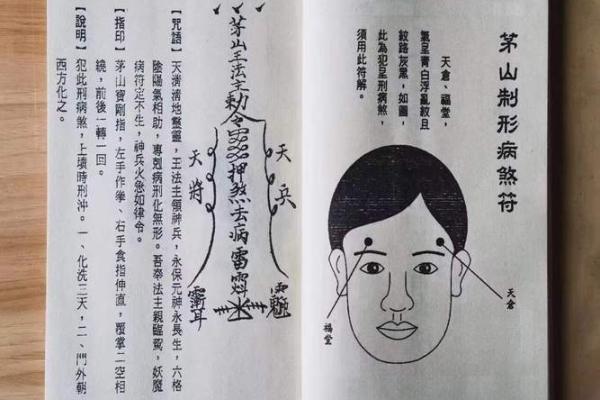 茅山制形病煞符
天倉、福堂，
氣呈青白浮亂紋且
紋路灰黑，如圖，
此為犯呈刑病煞，
須用此符解。
天倉
福堂
茅山王法主勅令
押煞去病
天兵
天將
【咒語】天清清地靈靈，王法主領神兵，永保元神永長生，六格
陰陽氣相助，專剋病刑化無形。吾奉法主親臨駕，妖魔
病符定不生，神兵火急如律令。
【指印】茅山寶剛指，左手作拳、右手食指伸直，覆掌二空相
繞，前後一轉一回。
【說明】犯此刑病煞，上壇時刑沖。一、化洗三天，二、門外朝
西方化之。